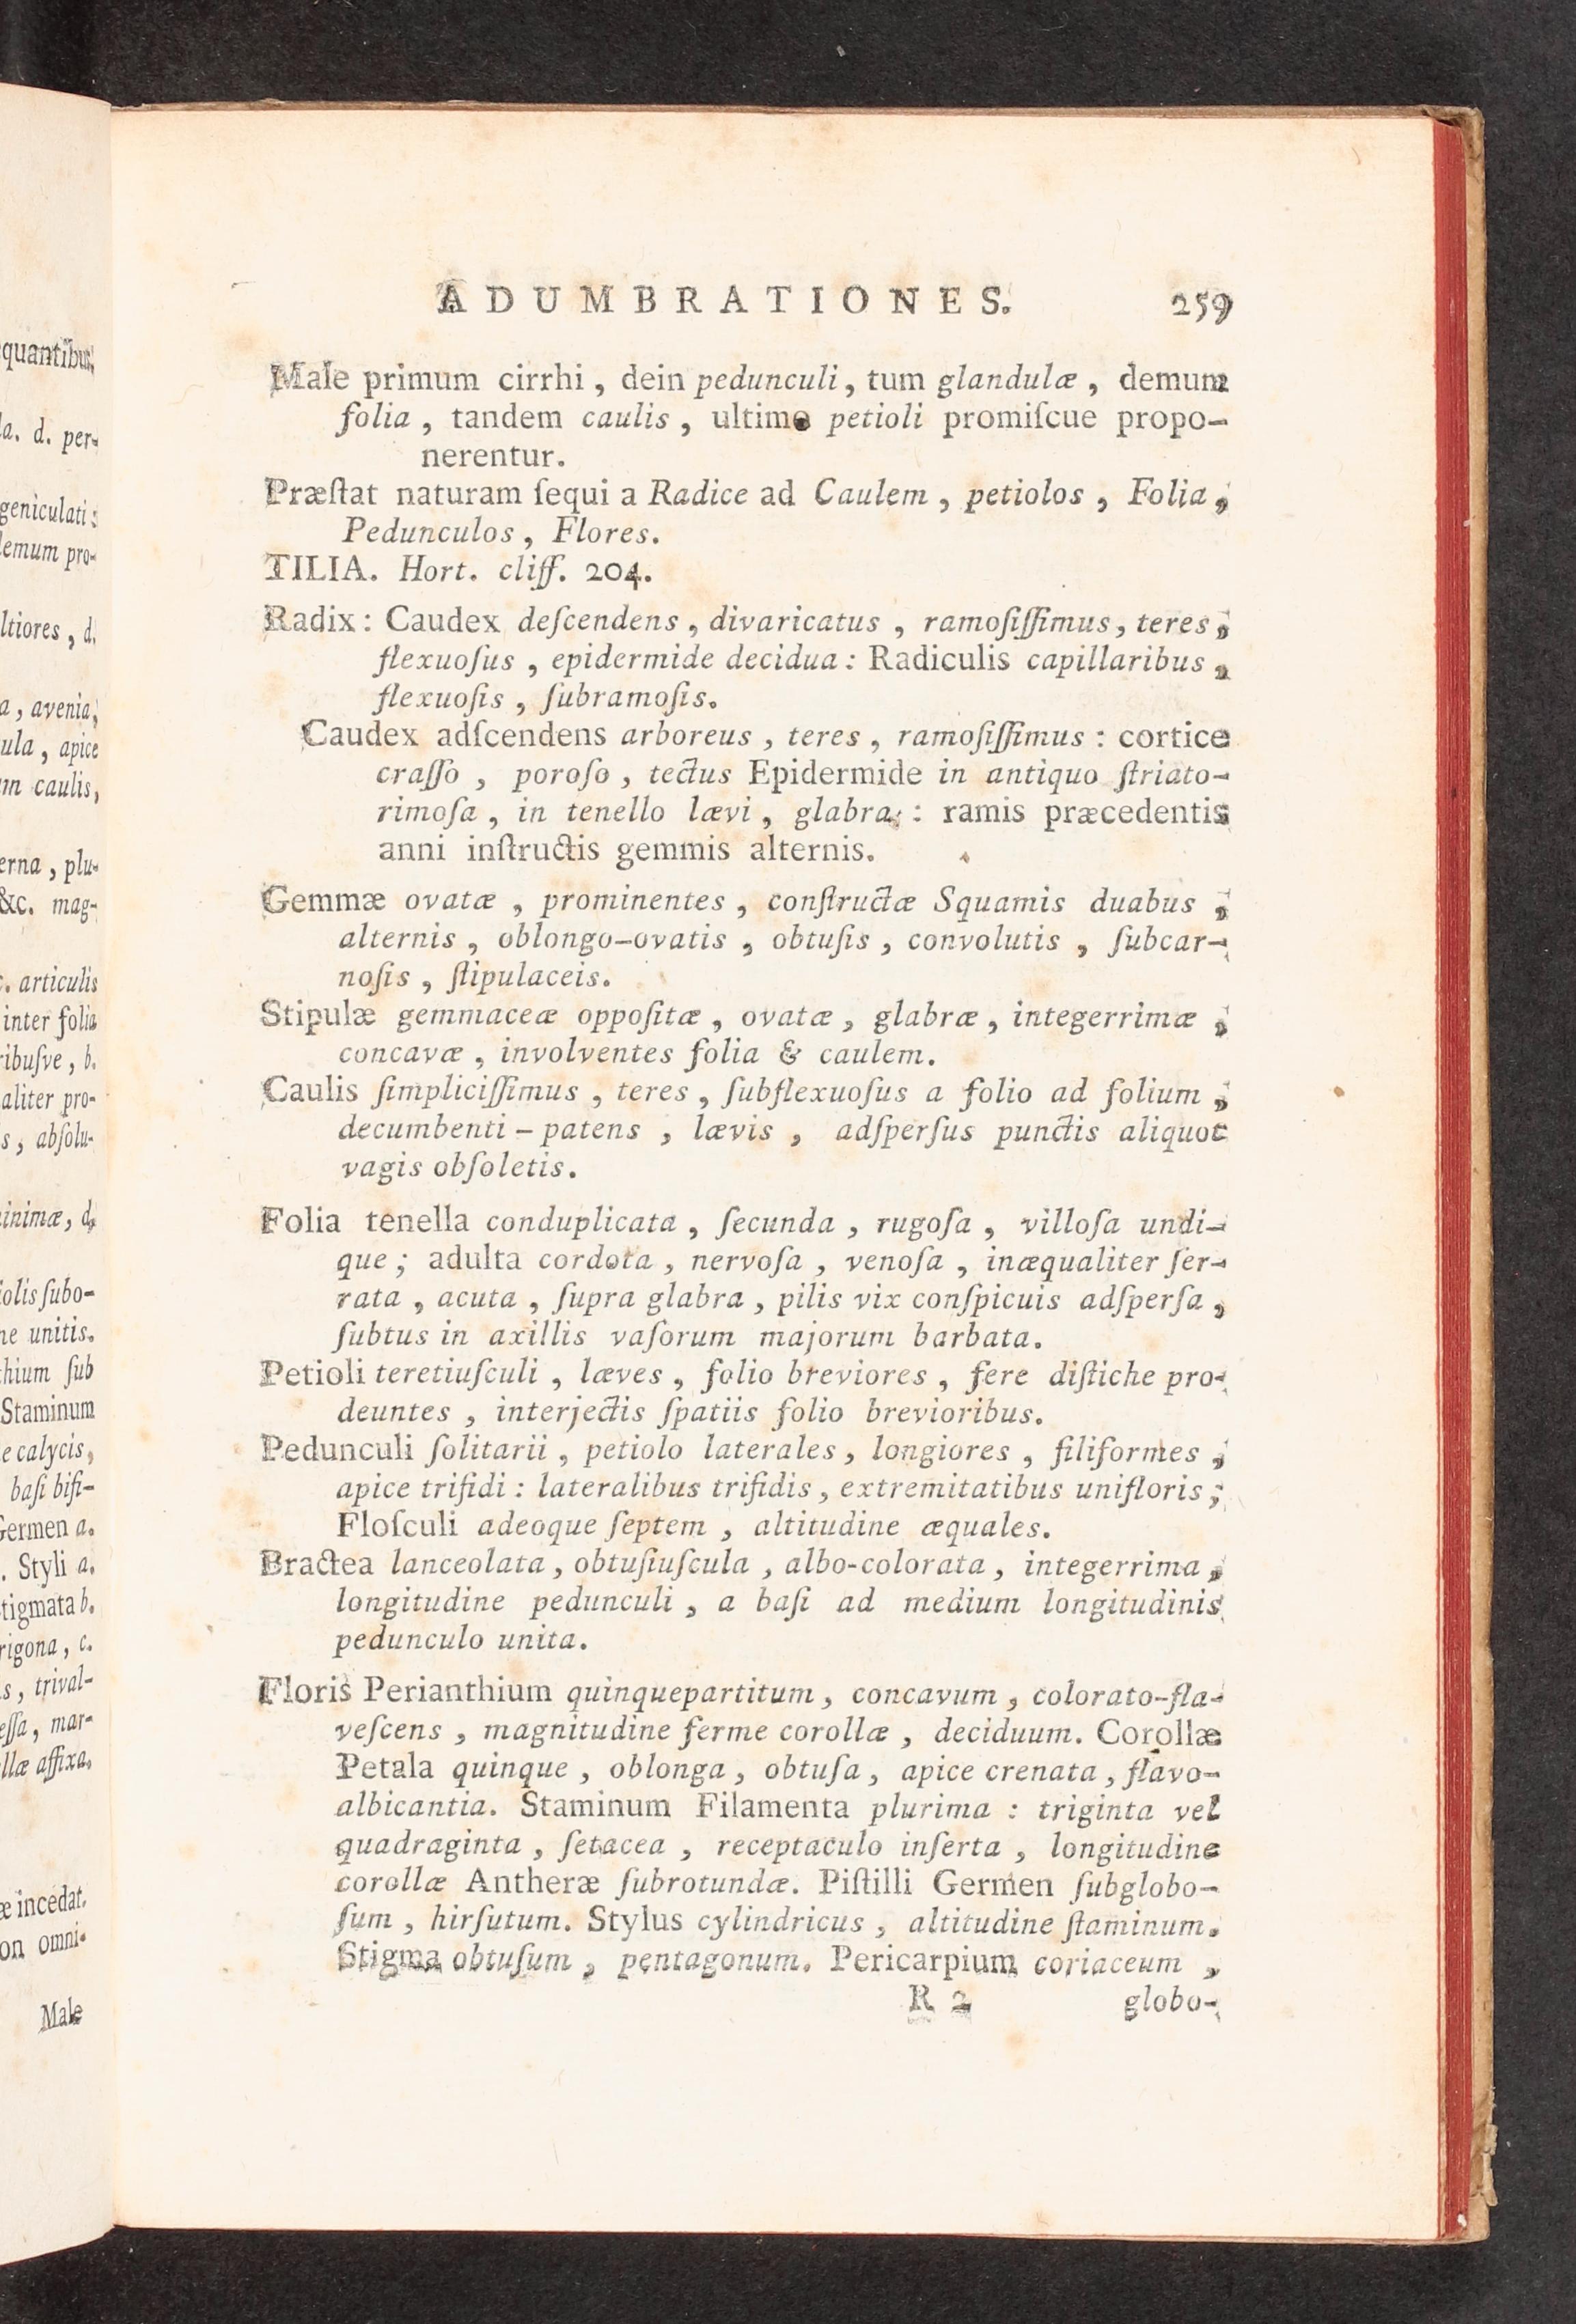 quantibus,
la. d. per-
geniculati:
demum pro-
ltiores, d.
a, avenia,
ula, apice
um caulis,
erna, plu-
&c. mag-
c. articulis
inter folia
ribuſve, b.
aliter pro-
s, abſolu-
inimæ, d,
iolis ſubo-
ne unitis.
thium ſub
Staminum
e calycis,
baſi bifi-
Germen a.
. Styli a.
tigmata b.
rigona, c.
s, trival-
eſſa, mar-
llæ affixa.
æ incedat.
on omni-
Male
ADUMBRATIONES. 259
Male primum cirrhi, dein pedunculi, tum glandulæ, demum
folia, tandem caulis, ultimo petioli promiſcue propo-
nerentur.
Præſtat naturam ſequi a Radice ad Caulem, petiolos, Folia,
Pedunculos, Flores.
TILIA. Hort. cliff. 204.
Radix: Caudex deſcendens, divaricatus, ramoſiſſimus, teres,
flexuoſus, epidermide decidua: Radiculis capillaribus,
flexuoſis, ſubramoſis.
Caudex adſcendens arboreus, teres, ramoſiſſimus: cortice
craſſo, poroſo, tectus Epidermide in antiquo ſtriato-
rimoſa, in tenello lævi, glabra: ramis præcedentis
anni inſtructis gemmis alternis.
Gemmæ ovatæ, prominentes, conſtructæ Squamis duabus,
alternis, oblongo-ovatis, obtuſis, convolutis, ſubcar-
noſis, ſtipulaceis.
Stipulæ gemmaceæ oppoſitæ, ovatæ, glabræ, integerrimæ,
concavæ, involventes folia & caulem.
Caulis ſimpliciſſimus, teres, ſubflexuoſus a folio ad folium,
decumbenti-patens, lævis, adſperſus punctis aliquot
vagis obſoletis.
Folia tenella conduplicata, ſecunda, rugoſa, villoſa undi-
que; adulta cordata, nervoſa, venoſa, inæqualiter ſer-
rata, acuta, ſupra glabra, pilis vix conſpicuis adſperſa,
ſubtus in axillis vaſorum majorum barbata.
Petioli teretiuſculi, læves, folio breviores, fere diſtiche pro-
deuntes, interjectis ſpatiis folio brevioribus.
Pedunculi ſolitarii, petiolo laterales, longiores, filiformes,
apice trifidi: lateralibus trifidis, extremitatibus unifloris;
Floſculi adeoque ſeptem, altitudine æquales.
Bractea lanceolata, obtuſiuſcula, albo-colorata, integerrima,
longitudine pedunculi, a baſi ad medium longitudinis
pedunculo unita.
Floris Perianthium quinquepartitum, concavum, colorato-fla-
veſcens, magnitudine ferme corollæ, deciduum. Corollæ
Petala quinque, oblonga, obtuſa, apice crenata, flavo-
albicantia. Staminum Filamenta plurima: triginta vel
quadraginta, ſetacea, receptaculo inſerta, longitudine
corollæ Antheræ ſubrotundæ. Piſtilli Germen ſubglobo-
ſum, hirſutum. Stylus cylindricus, altitudine ſtaminum.
Stigma obtuſum, pentagonum. Pericarpium coriaceum,
R 2 globo-